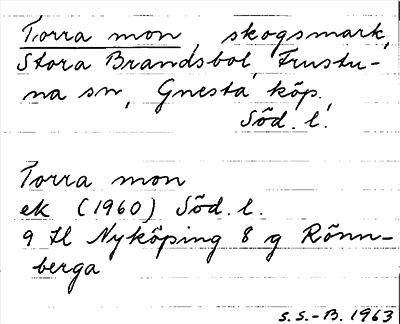 Torra mon, skogsmark,
Stora Brandsbol, Frustu-
na sn, Gnesta köp,
Söd. l.
Torra mon
ek (1960) Söd. l.
9 H Nyköping 8 g Rönn-
berga
S.S.-B. 1963